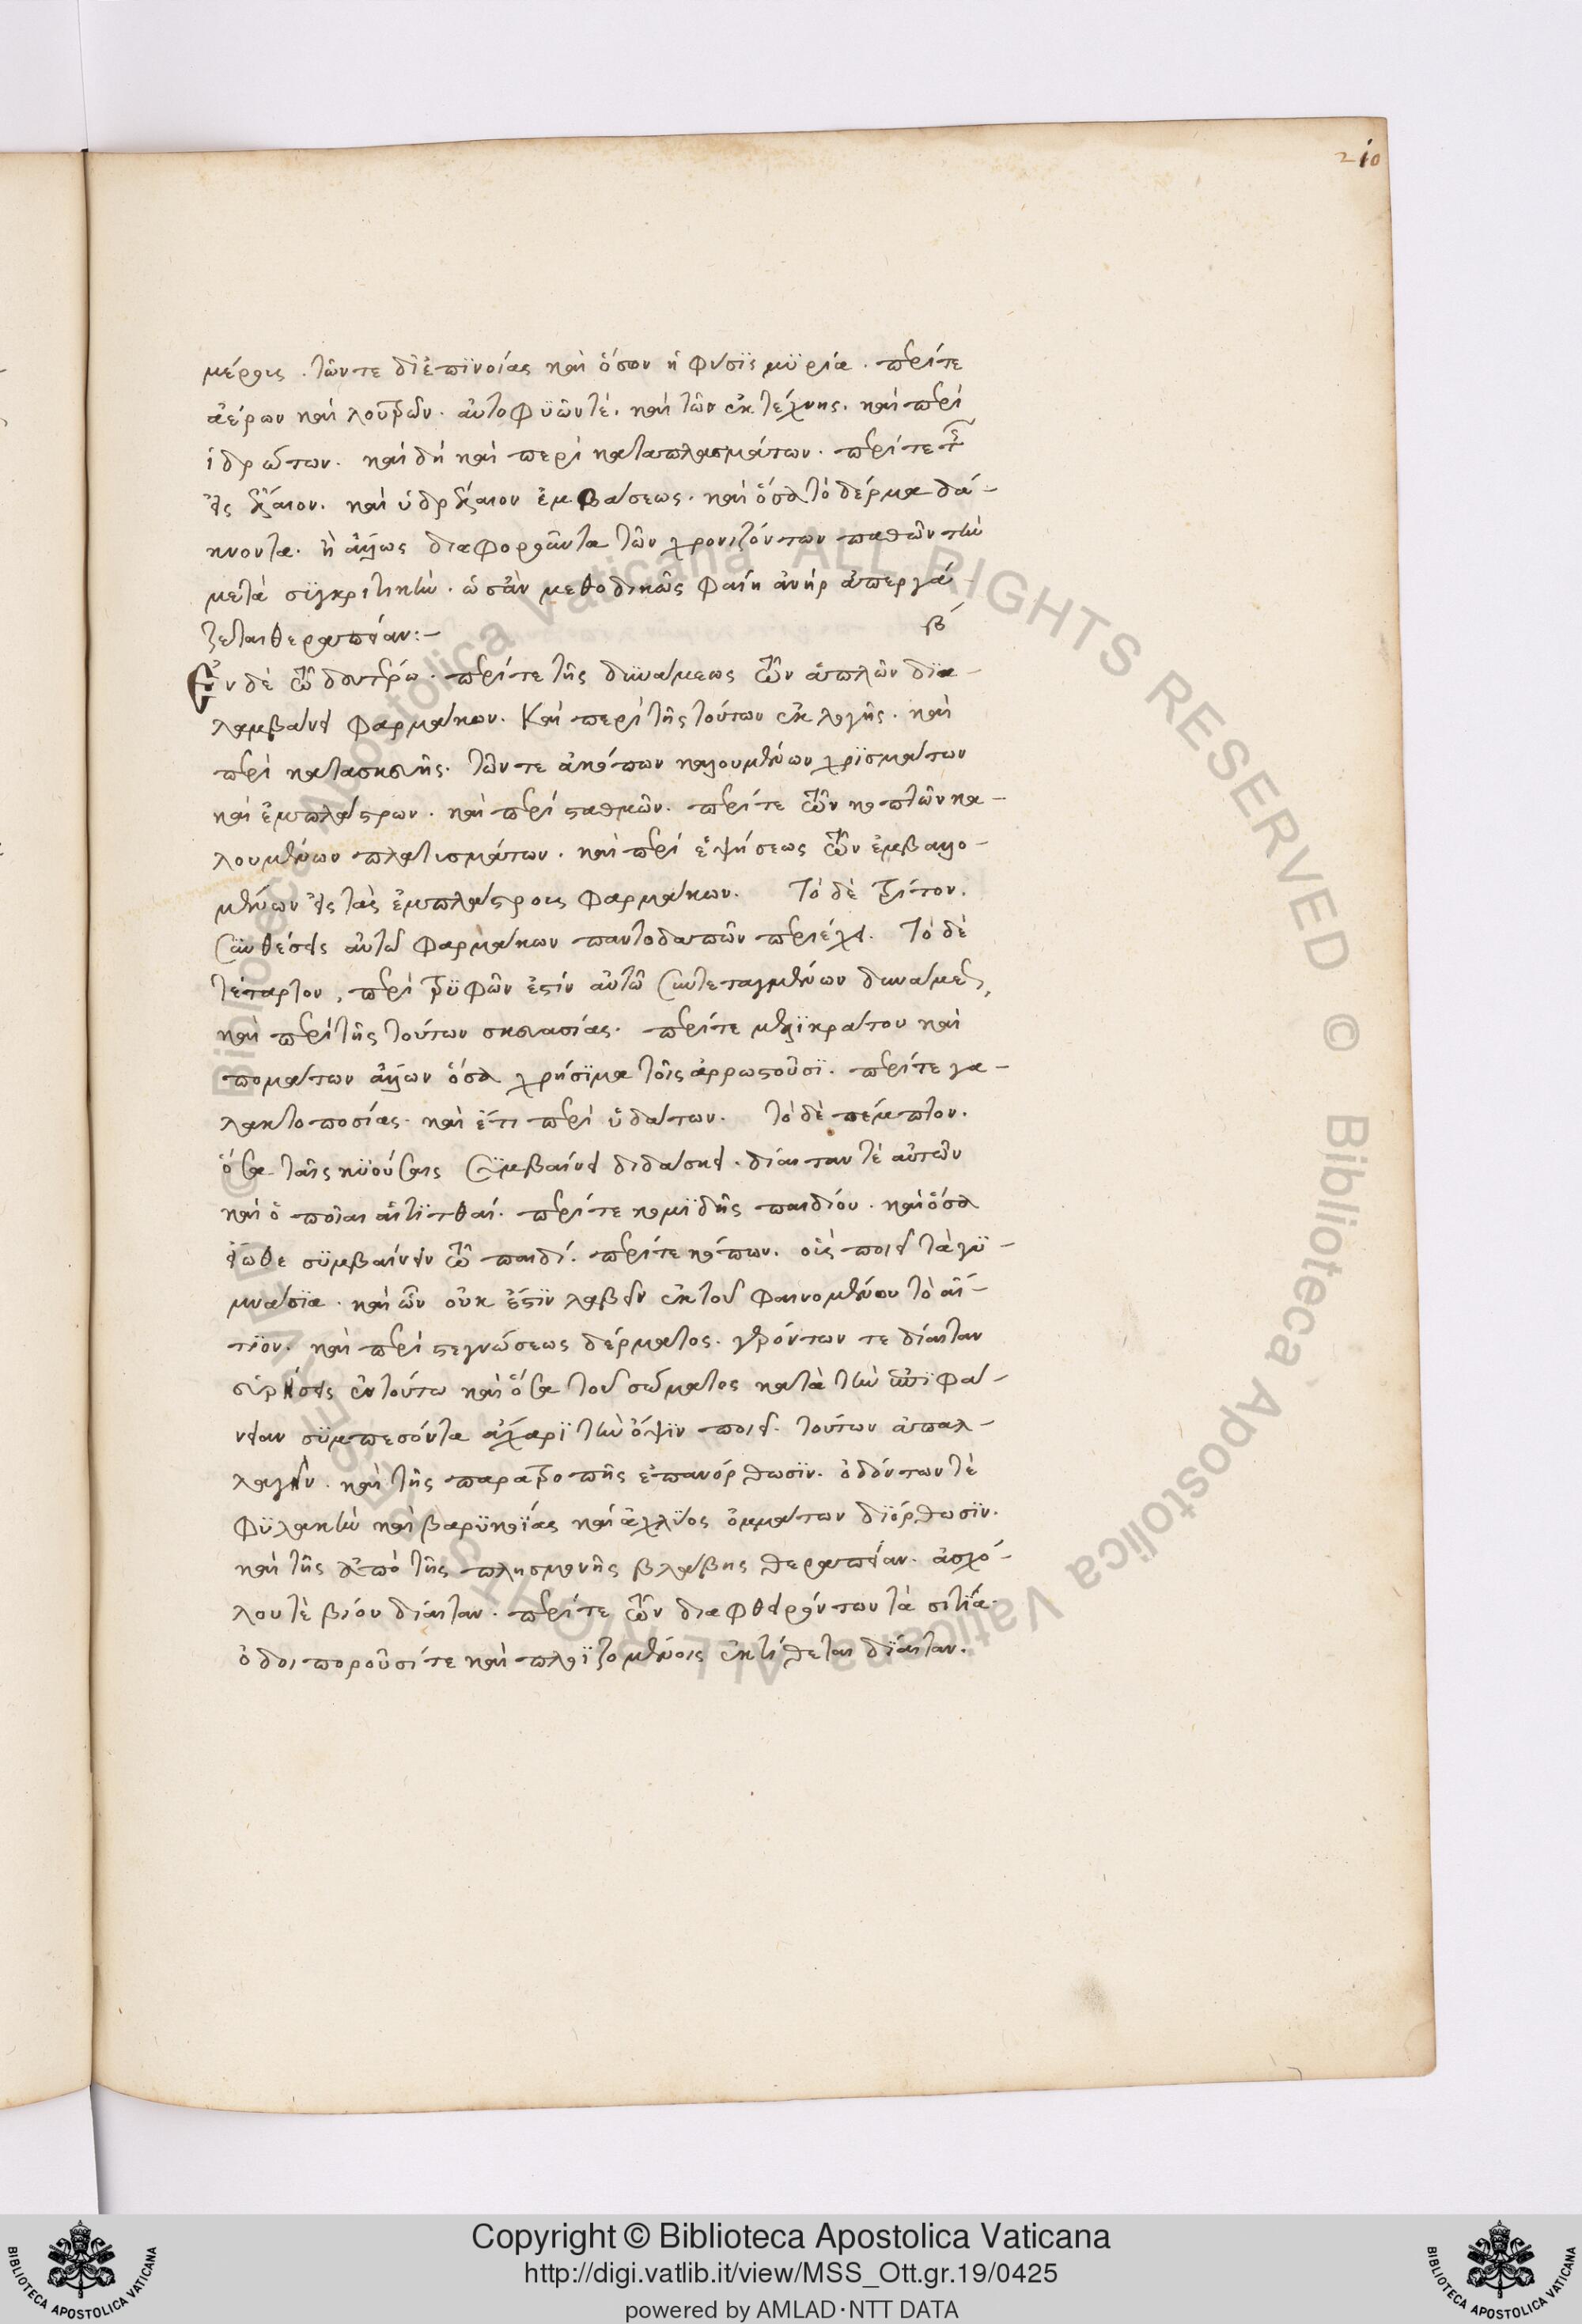 210
μέρους . τῶν τε δι ἐπϊνοίας καὶ ὅσον ἡ φύσϊς μϋρία . περί τε
ἀέρων καὶ λουτρῶν . αὐτοφϋῶν τὲ . καὶ τῶν ἐκ τέχνης . καὶ περὶ
ἱδρώτων . καὶ δὴ καὶ περὶ καταπλασμάτων . περί τε τῆς
εἰς ἔλαιον . καὶ ὑδρέλαιον ἐμβάσεως . καὶ ὅσα τὸ δέρμα δά-
κνοντα . ἢ ἄλλως διαφοροῦντα τῶν χρονιζόντων παθῶν τὴν
μετὰ σϋγκριτικὴν . ὡς ἂν μεθοδικῶς φαίη ἀνὴρ ἀπεργά-
ζεται θεραπείαν :-
β
Ἐν δὲ τῶ δευτέρω . περί τε τῆς δϋνάμεως τῶν ἁπλῶν δϊα-
λαμβάνει φαρμάκων . Καὶ περὶ τῆς τούτων ἐκλογῆς . καὶ
περὶ κατασκευῆς . τῶν τε ἀκόπων καλουμένων χρϊσμάτων
καὶ ἐμπλάστρων . καὶ περὶ σταθμῶν . περί τε τῶν κοπτῶν κα-
λουμένων πλατισμάτων . καὶ περὶ ἑψήσεως τῶν ἐμβαλλο-
μένων εἰς τὰς ἐμπλάστρους φαρμάκων . Τὸ δὲ τρίτον .
Σϋνθέσεις αὐτῶ φαρμάκων παντοδαπῶν περιέχει . Τὸ δὲ
τέταρτον , περὶ τρϋφῶν ἐστὶν αὐτῶ συντεταγμένων δυνάμεως ,
καὶ περὶ τῆς τούτων σκευασίας . περί τε μελϊκράτου καὶ
πομάτων ἄλλων ὅσα χρήσϊμα τοῖς ἀρρωστοῦσϊ . περί τε γα-
λακτοποσίας . καὶ ἔτι περὶ ὑδάτων . τὸ δὲ πέμπτον .
ὅσα ταῖς κϋούσαις Σϋμβαίνει διδάσκει . δίαιταν τὲ αὐτῶν
καὶ ὁποῖαι αἱ τϊτθαί . περί τε κομϊδῆς παιδίου . καὶ ὅσα
εἴωθε σϋμβαίνειν τῶ παιδί . περί τε κόπων . οἷς ποιεῖ τὰ γϋ-
μνάσϊα . καὶ ὧν οὐκ ἔστϊν λαβεῖν ἐκ τοῦ φαινομένου τὸ αἴ-
τϊον . καὶ περὶ στεγνώσεως δέρματος . γερόντων τε δίαιταν
εὑρήσεις ἐν τούτω καὶ ὅσα τοῦ σώματος κατὰ τὴν ἐπϊφά-
νειαν σϋμπεσόντα ἄχαρϊ τὴν ὄψϊν ποιεῖ . τούτων ἀπαλ-
λαγὴν . καὶ τῆς παρατροπῆς ἐπανόρθωσϊν . ὀδόντων τὲ
φϋλακὴν καὶ βαρϋκοΐας καὶ ἀχλϋος ὀμμάτων διόρθωσϊν .
καὶ τῆς ἀπὸ τῆς πλησμονῆς βλάβης θεραπείαν . ἀσχό-
λου τὲ βίου δίαιταν . περί τε τῶν διαφθειρόντων τὰ σιτία .
ὁδοιποροῦσί τε καὶ πλοϊζομένοις ἐκτίθεται δίαιταν .
Copyright © Biblioteca Apostolica Vaticana
http://digi.vatlib.it/view/MSS_Ott.gr.19/0425
powered by AMLAD·NTT DATA